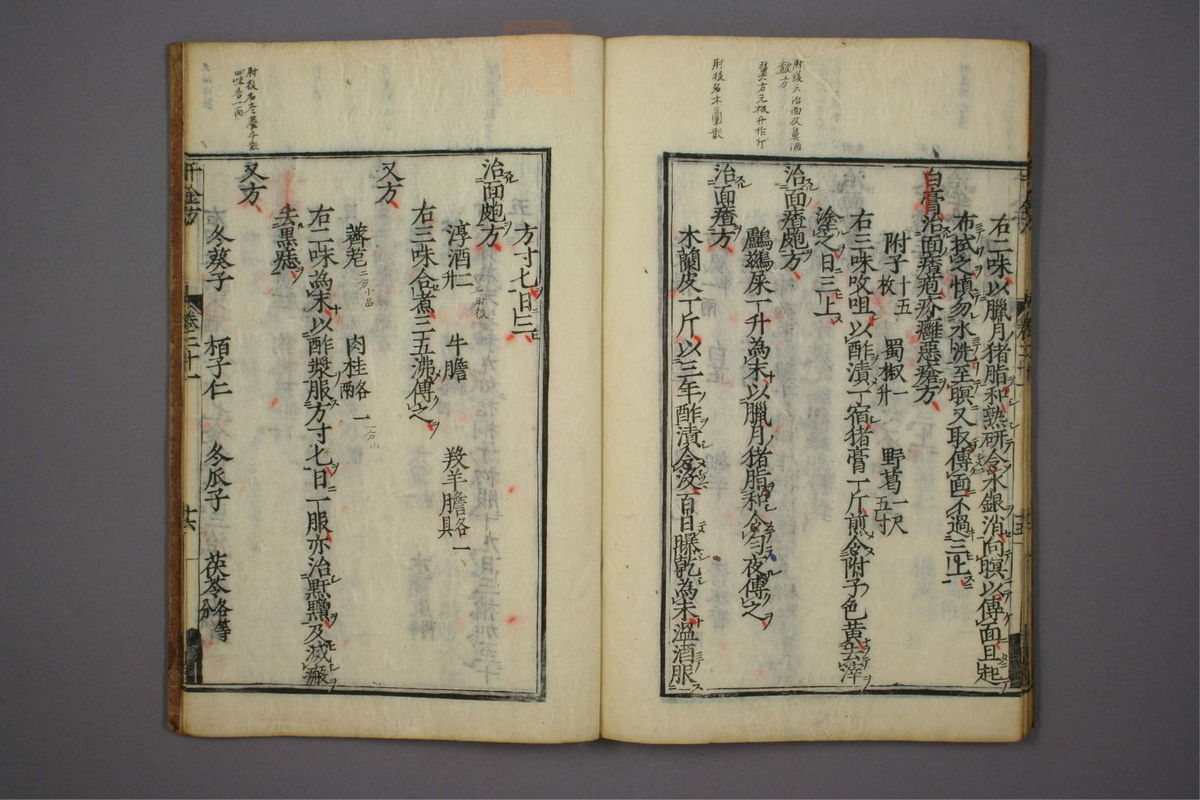 肘後云治面及鼻酒
𪖐方
翼方无枚升作斤
肘後名木蘭散
右二味以臘月猪脂和熟研令水銀消向暝以傅面旦起
布拭之慎勿水洗至暝又取傅面不過三上
白膏治面瘡皰疥癰惡瘡方
附子十五枚 蜀椒一升 野葛一尺五寸
右三味㕮咀以酢漬一宿猪膏一斤煎令附子色黃去滓
塗之日三上
治面皰方
鸕鷀屎一升為末以臘月猪脂和令勻夜傅之
治面方
木蘭皮一斤以三年酢漬令沒百日曝乾為末溫酒服
方寸匕日三
治面皰方
淳酒二升 牛膽 羖羊膽各一具
右三味合煮三五沸傅之
又方
薺苨 肉桂各一兩
右二味為末以酢漿服方寸匕日一服亦治䵟䵳及滅瘢
去黑痣
又方
冬葵子 栢子仁 冬瓜子 茯苓各等分
千金方 卷二十一 十六